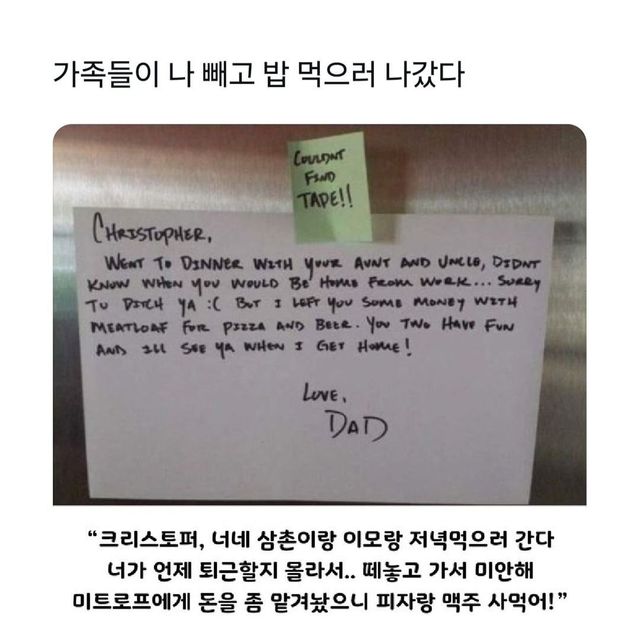 가족들이 나 빼고 밥 먹으러 나갔다
COULDNT
FIND
TAPE!!
CHRISTOPHER,
WENT TO DINNER WITH YOUR AUNT AND UNCLE, DIDNT
KNOW WHEN YOU WOULD BE HOME FROM WORK... SORRY
TO DITCH YA :( BUT I LEFT YOU SOME MONEY WITH
MEATLOAF FOR PIZZA AND BEER. YOU TWO HAVE FUN
AND ILL SEE YA WHEN I GET HOME!
LOVE,
DAD
“크리스토퍼, 너네 삼촌이랑 이모랑 저녁먹으러 간다
너가 언제 퇴근할지 몰라서.. 떼놓고 가서 미안해
미트로프에게 돈을 좀 맡겨놨으니 피자랑 맥주 사먹어!”